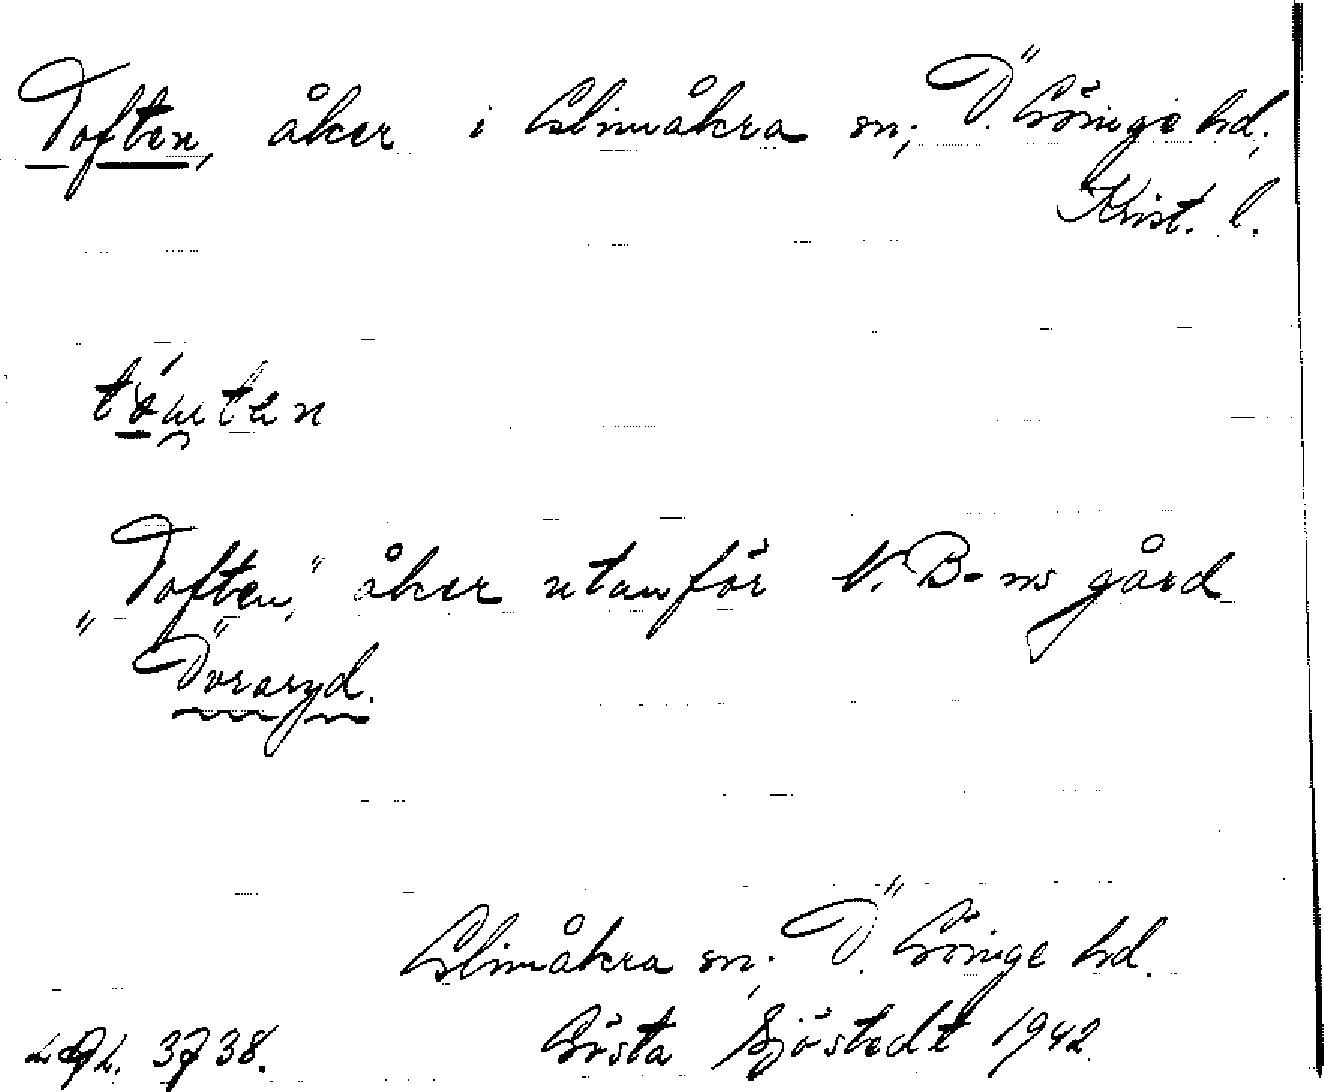 Toften, åker i Glimåkra sn; Ö. Göinge hd;
Krist. l.
"Toften," åker utanför N. B-ns gård
Öraryd.
Glimåkra sn; Ö. Göinge hd.
Gösta Sjöstedt 1942.
3738.